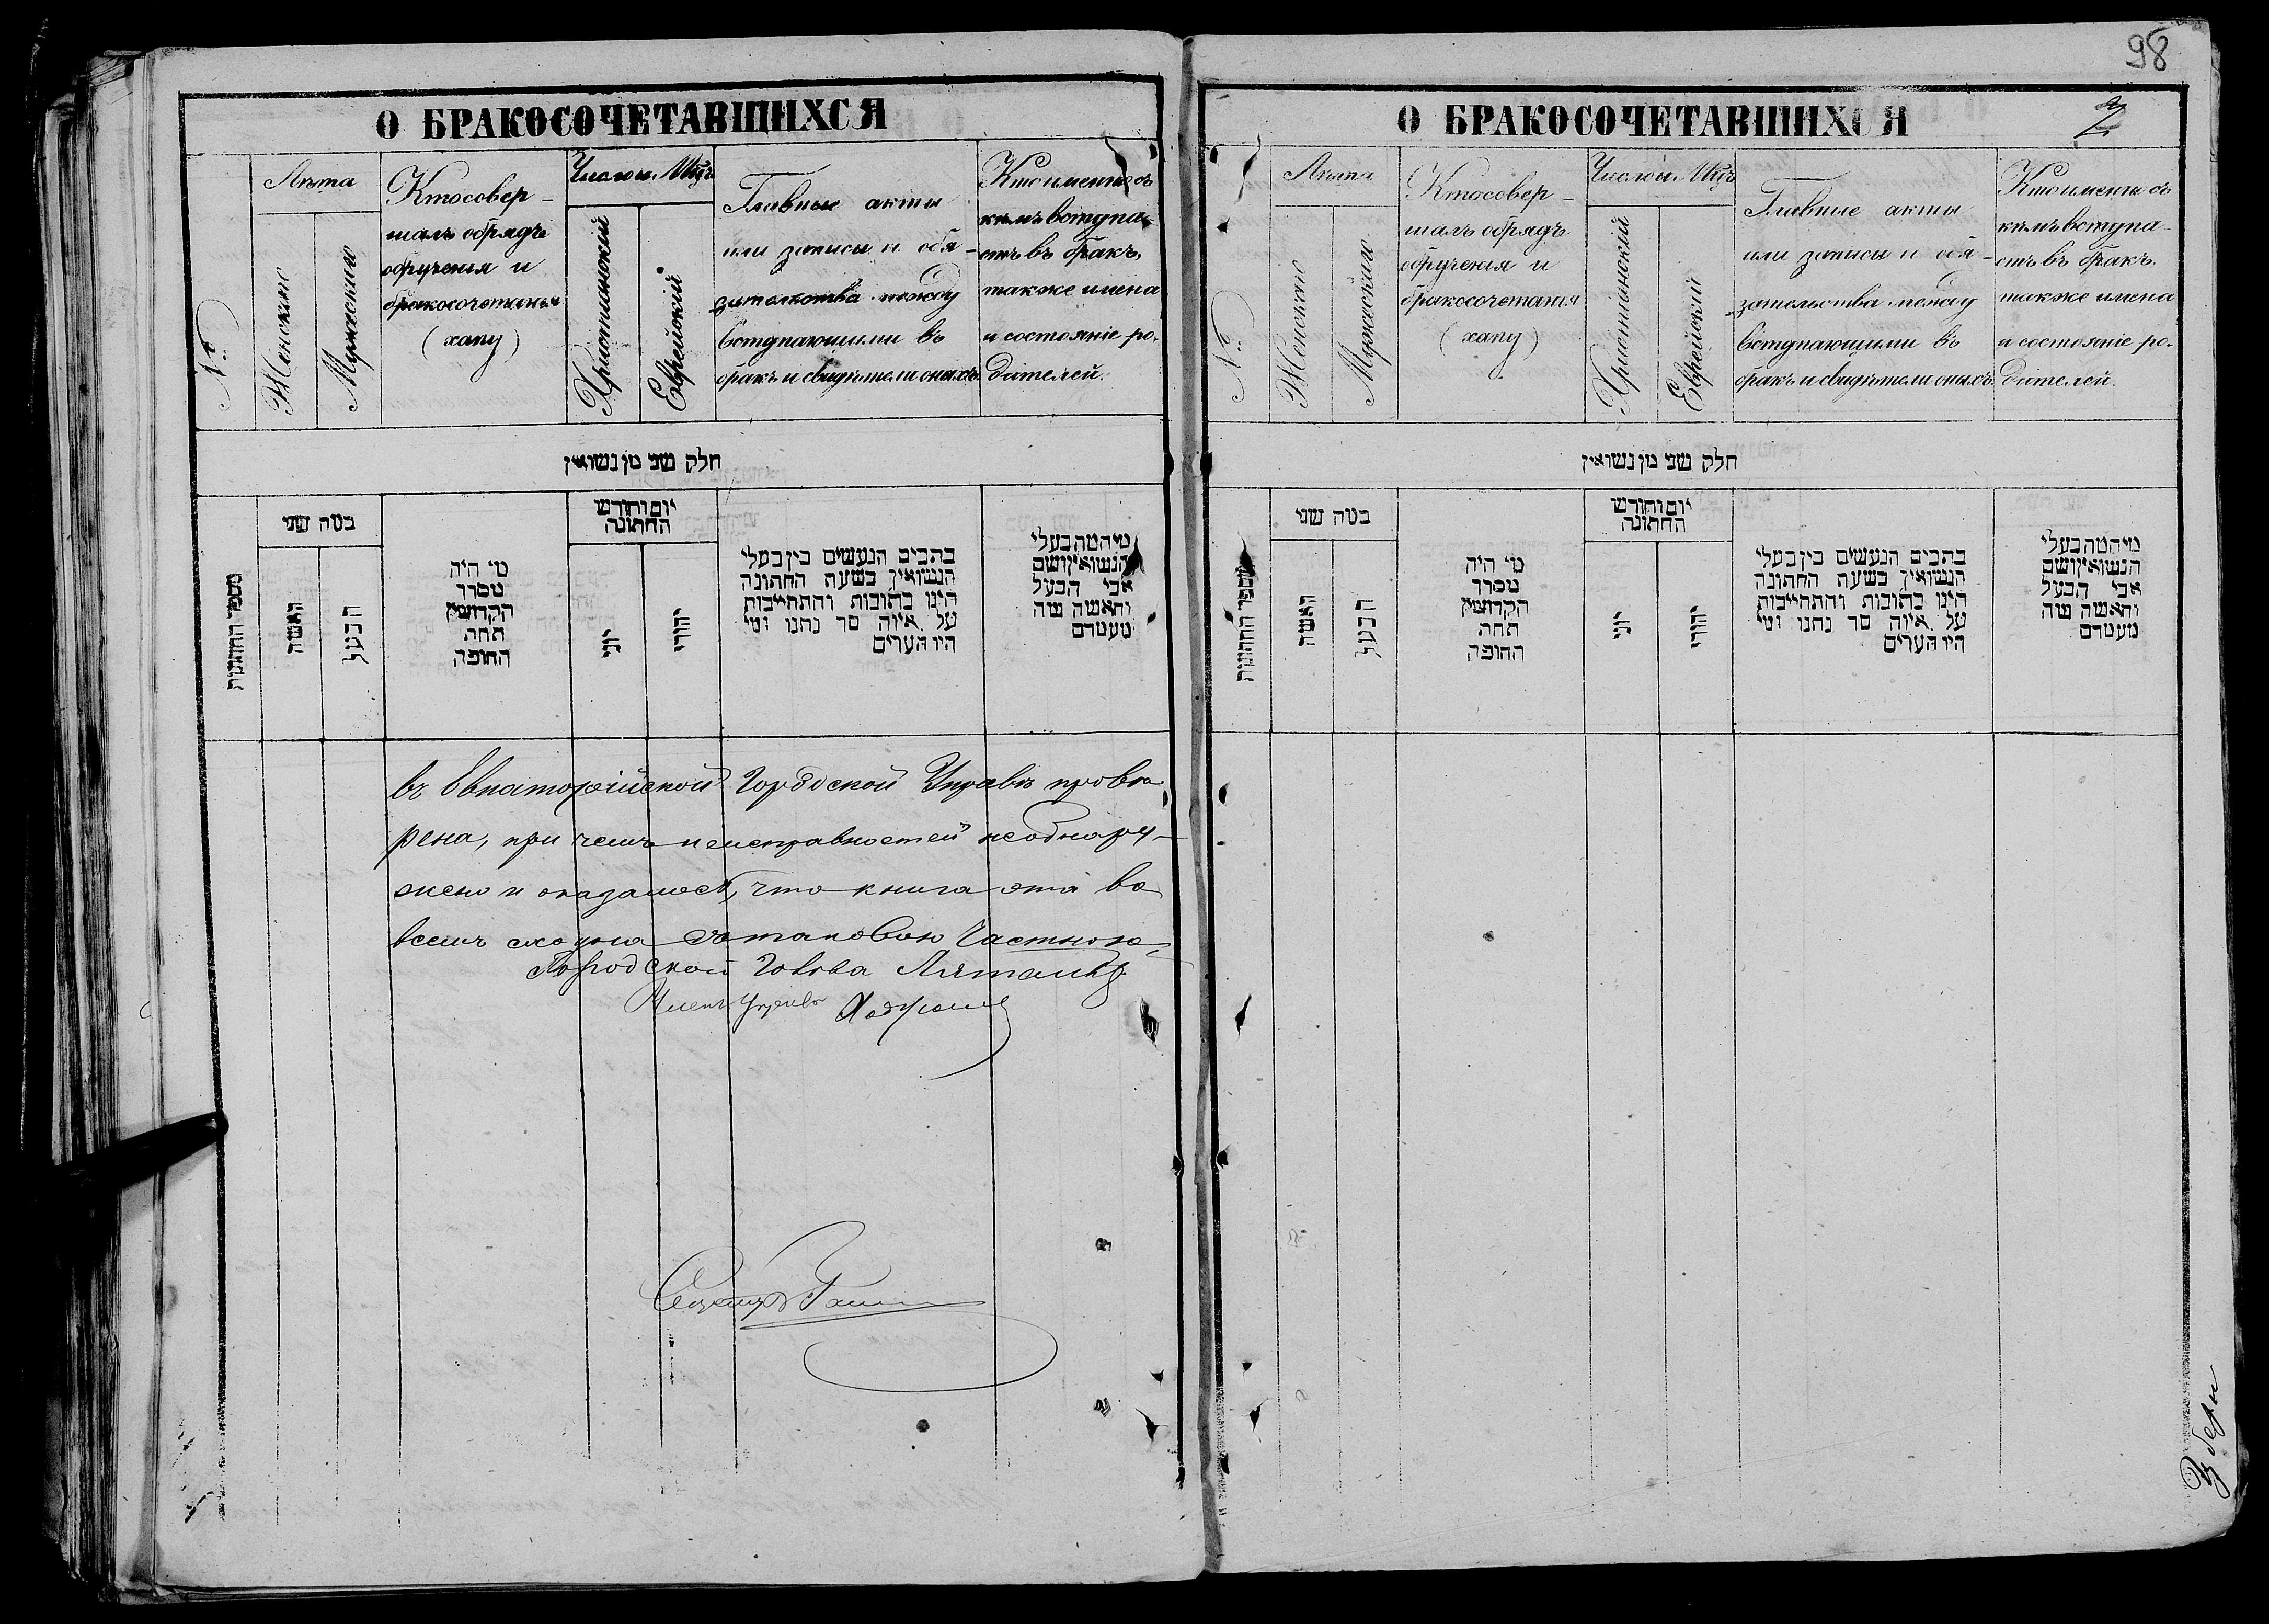 98
О БРАКОСОЧЕТАВШИХСЯ
№
Лѣта
Женскіе
Мужескіе
Кто совер-
шалъ обрядъ
обрученія и
бракосочетанія
(хапу)
Число и Мцъ
Христіанскій
Еврейскій
Главные акты
или записи и обя-
зательства между
вступающими въ
бракъ и свидѣтели оныхъ.
Кто именно съ
кѣмъ вступа-
етъ въ бракъ,
также имена
и состояніе ро-
дителей.
חלק שני מן נשואין
מספר החתונות
כמה שני
האשה
הבעל
מי היה
מסדר
הקדושין
תחת
החופה
יום וחודש
החתונה
יוני
יהודי
כתבים הנעשים בין בעלי
הנשואין בשעת החתונה
היינו כתובות והתחייבות
על איזה סך נתנו ומי
היו העדים
מי המה בעלי
הנשואין ושם
אבי הבעל
והאשה ומה
מעמדם
въ Евпаторійской Городской Управѣ провѣ-
рена, при чемъ неисправностей необнару-
жено и оказалось, что книга эта во
всемъ сходна съ таковою Частною,
Городской Голова
Членъ Управы
О БРАКОСОЧЕТАВШИХСЯ
2
№
Лѣта
Женскіе
Мужескіе
Кто совер-
шалъ обрядъ
обрученія и
бракосочетанія
(хапу)
Число и Мцъ
Христіанскій
Еврейскій
Главные акты
или записи и обя-
зательства между
вступающими въ
бракъ и свидѣтели оныхъ.
Кто именно съ
кѣмъ вступа-
етъ въ бракъ.
также имена
и состояніе ро-
дителей.
חלק שני מן נשואין
מספר החתונות
כמה שני
האשה
הבעל
מי היה
מסדר
הקדושין
תחת
החופה
יום וחודש
החתונה
יוני
יהודי
כתבים הנעשים בין בעלי
הנשואין בשעת החתונה
היינו כתובות והתחייבות
על איזה סך נתנו ומי
היו העדים
מי המה בעלי
הנשואין ושם
אבי הבעל
והאשה ומה
מעמדם